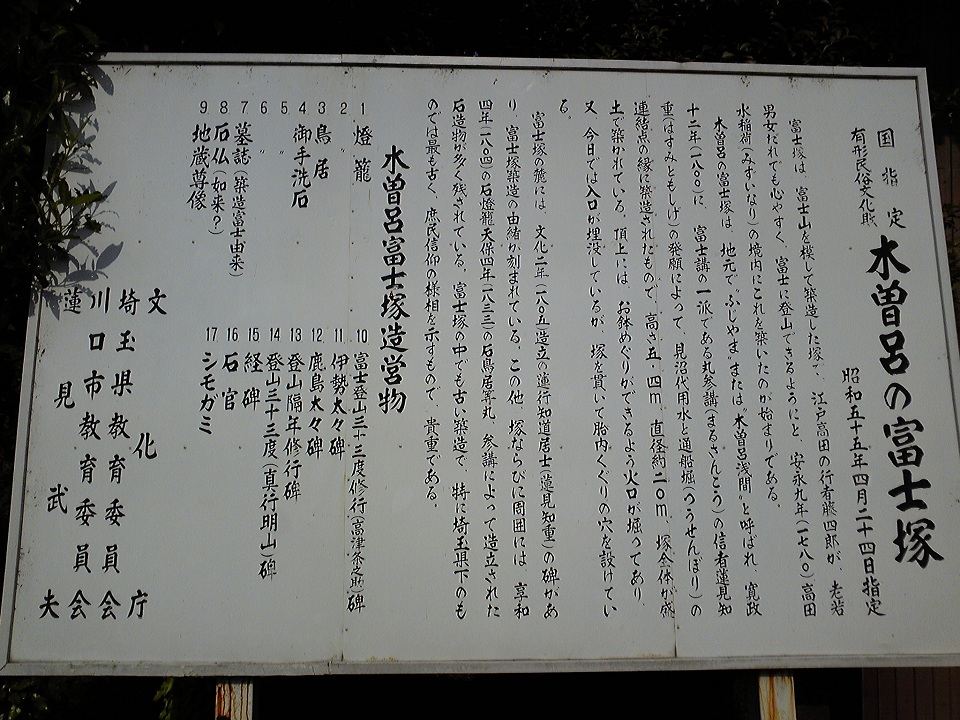 国指定
有形民俗文化財
木曽呂の富士塚
昭和五十五年四月二十四日指定
富士塚は、富士山を模して築造した塚で、江戸高田の行者藤四郎が、老若
男女だれでも心やすく、富士に登山できるようにと、安永九年(一七八〇)高田
水稲荷(みずいなり)の境内にこれを築いたのが始まりである。
木曽呂の富士塚は、地元で〝ふじやま〟または〝木曽呂浅間〟と呼ばれ、寛政
十二年(一八〇〇)に、富士講の一派である丸参講(まるさんこう)の信者蓮見知
重(はすみともしげ)の発願によって、見沼代用水と通船堀(つうせんぼり)の
連結点の縁に築造されたもので、高さ五・四m、直径約二〇m、塚全体が盛
土で築かれている。頂上には、お鉢めぐりができるよう火口が掘ってあり、
又、今日では入口が埋没しているが、塚を貫いて胎内くぐりの穴を設けてい
る。
富士塚の麓には、文化二年(一八〇五造立の蓮行知道居士(蓮見知重)の碑があ
り、富士塚築造の由緒が刻まれている。この他、塚ならびに周囲には、享和
四年(一八〇四)の石燈籠天保四年(一八三三)の石鳥居等丸、参講によって造立された
石造物が多く残されている。富士塚の中でも古い築造で、特に埼玉県下のも
のでは最も古く、庶民信仰の様相を示すもので、貴重である。
木曽呂富士塚造営物
1 燈籠
2 〃
3 鳥居
4 御手洗石
5 〃
6 〃
7 墓誌(築造富士由来)
8 石仏(如来?)
9 地蔵尊像
10 富士登山三十三度修行(高津茶之助)碑
11 伊勢太々碑
12 鹿島太々碑
13 登山隔年修行碑
14 登山三十三度(真行明山)碑
15 経碑
16 石宮
17 シモガミ
文化庁
埼玉県教育委員会
川口市教育委員会
蓮見武夫